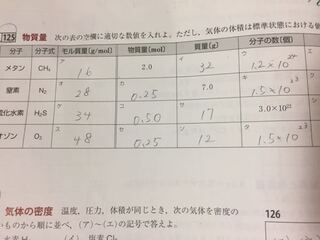 125 物質量 次の表の空欄に適切な数値を入れよ。ただし，気体の体積は標準状態における値
分子 分子式 モル質量(g/mol) 物質量(mol) 質量(g) 分子の数(個)
メタン CH₄ ア 16 2.0 イ 32 ウ 1.2×10²⁴ エ
窒素 N₂ オ 28 カ 0.25 7.0 キ 1.5×10²³
硫化水素 H₂S ケ 34 コ 0.50 サ 17 3.0×10²³
オゾン O₃ ス 48 セ 0.25 ソ 12 タ 1.5×10²³
気体の密度 温度，圧力，体積が同じとき，次の気体を密度の
いものから順に並べ，(ア)～(エ)の記号で答えよ。
水素 H₂ (イ) 塩素 Cl₂
126